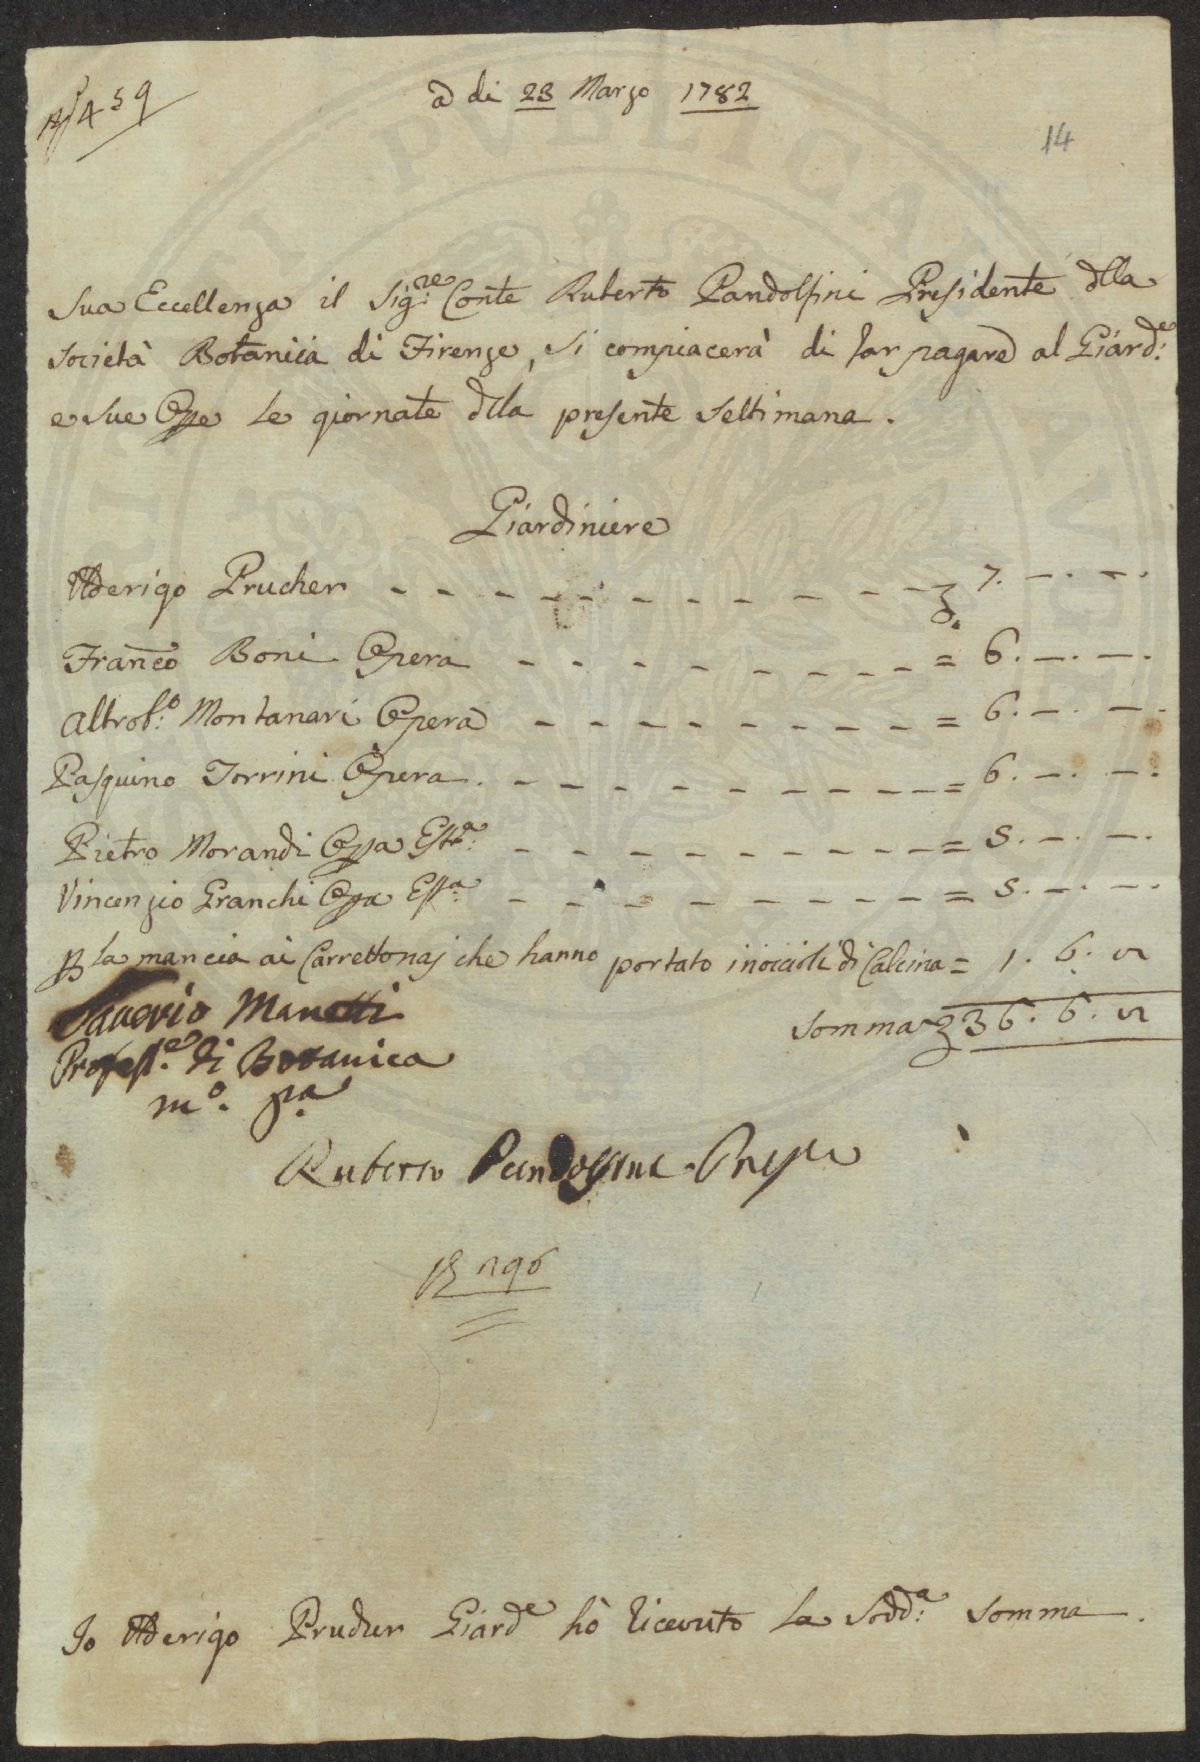 N 459
a di 23 Marzo 1782
14
Sua Eccellenza il Sig:re Conte Ruberto Pandolfini Presidente dlla
Società Botanica di Firenze, si compiacerà di far pagare al Giard:e
e sue Oppe le giornate dlla presente Settimana.
Giardiniere
Aderigo Prucher - - - - - - - - - - - 7. —. —.
Franco Boni Opera - - - - - - - - = 6. —. —.
Altrob:o Montanari Opera - - - - - - - - = 6. —. —.
Pasquino Torrini Opera - - - - - - - - = 6. —. —.
Pietro Morandi Oppa Estr:a - - - - - - - - = 5. —. —.
Vincenzio Granchi Oppa - - - - - - - - = 5. —. —.
la mancia ai Carrettonaj che hanno portato i noccioli di Calcina = 1. 6. 
Saverio Manetti
Somma 36. 6. 
Profess.e di Botanica
m.o p.a
Ruberto Pandolfini
Io Aderigo Prucher Giard.e hò ricevuto la Sodd:a Somma.
PVBLICAE